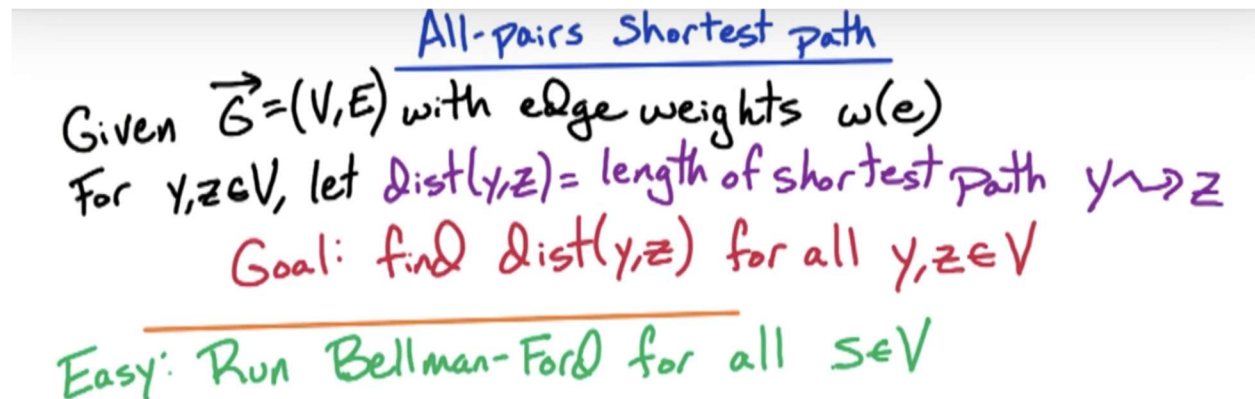 All-pairs Shortest path
Given G⃗=(V,E) with edge weights w(e)
For y,z∈V, let dist(y,z)= length of shortest path y⤳z
Goal: find dist(y,z) for all y,z∈V
Easy: Run Bellman-Ford for all s∈V